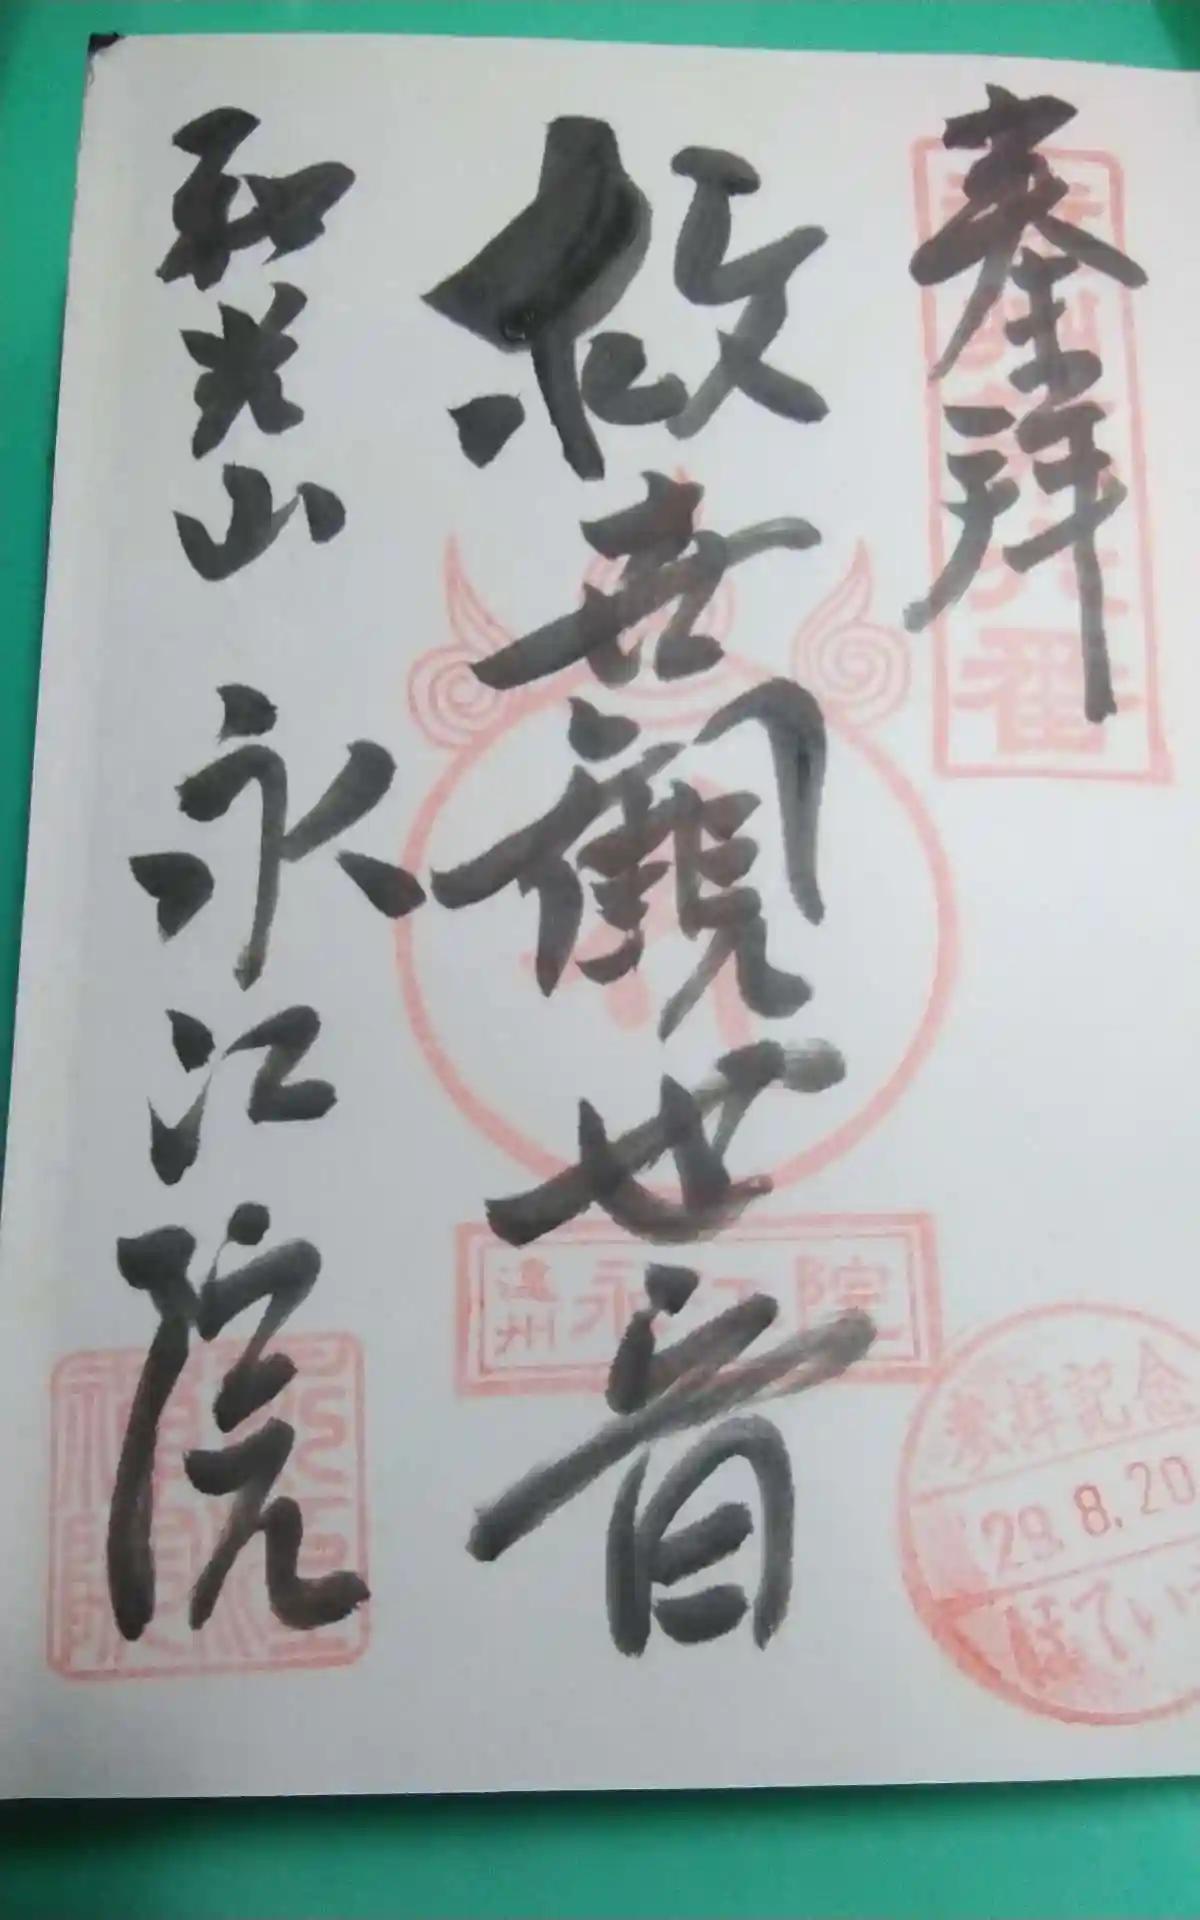 奉拝
救世観世音
和光山 永江院
遠州 永江院
参拝記念
29.8.20
ほてい